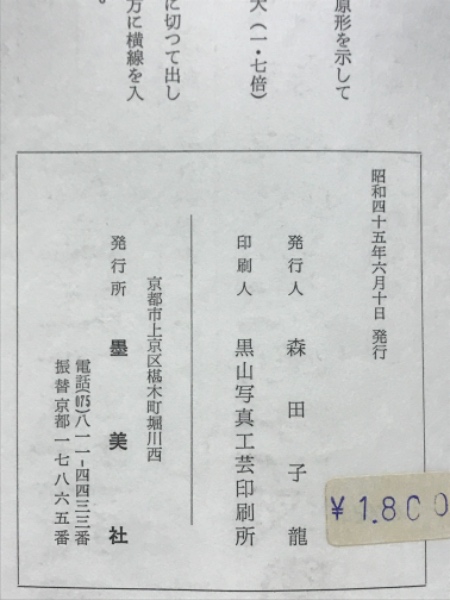 原形を示して
大(一・七倍)
に切つて出し
方に横線を入
。
昭和四十五年六月十日 発行
発行人 森田子龍
印刷人 黒山写真工芸印刷所
京都市上京区椹木町堀川西
発行所 墨美社
電話(075)八一一-四四三三番
振替京都一七八六五番
¥1.800